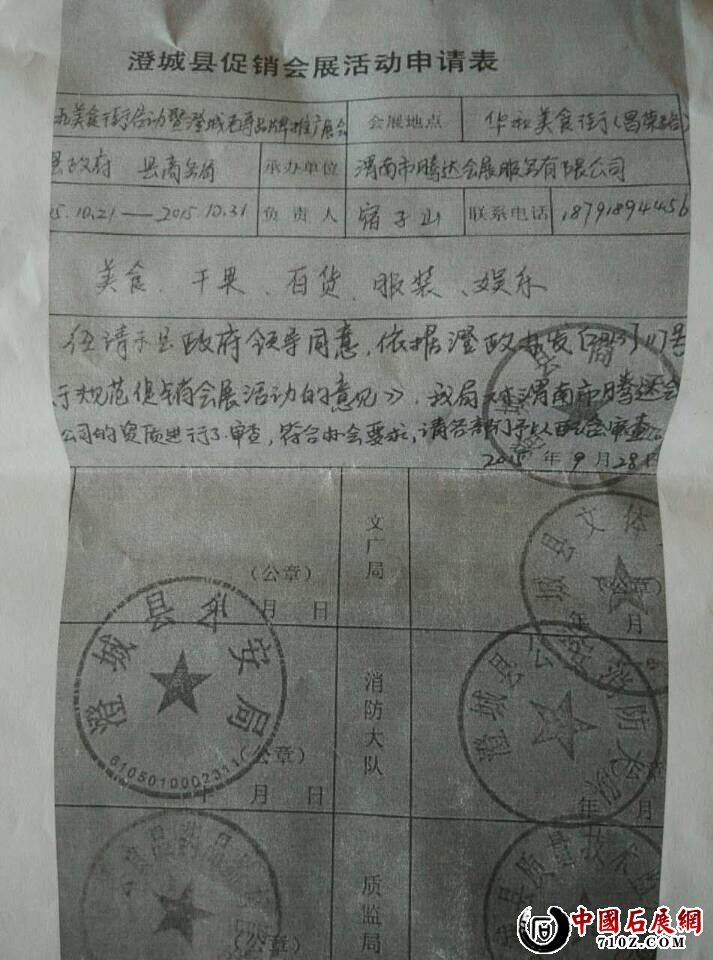 澄城县促销会展活动申请表
美食街启动暨澄城 品牌推广展会 会展地点 华 美食街(昌荣
县政府 县商务局 承办单位 渭南市腾达会展服务有限公司
15.10.21——2015.10.31 负责人 宿子山 联系电话 18791894456
美食 干果、百货、服装、娱乐
请示县政府领导同意,依据澄政办发〔2013〕 号
规范促销会展活动的意见》,我局对渭南市腾达会
公司的资质进行了审查,符合办会要求,请各部门予以 审查。
2015年9月28日
文广局
(公章)
月 日
澄城县文体
(公章)
年 月
澄城县公安局
6105010002311
(公章)
年 月 日
消防大队
澄城县公安消防大队
年 月
质监局
(公章)
县质量技术监
中國石展網
71OZ.COM